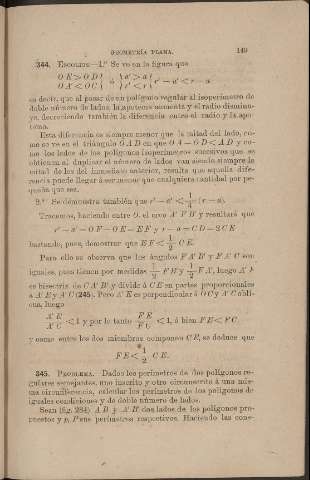 GEOMETRÍA PLANA. 149
344. ESCOLIOS—1.º Se ve en la figura que
O E > O D } ó { a' > a } r' — a' < r — a
O A' < O C } { r' < r }
es decir, que al pasar de un polígono regular al isoperímetro de
doble número de lados, la apotema aumenta y el radio disminu-
ye, decreciendo también la diferencia entre el radio y la apo-
tema.
Esta diferencia es siempre menor que la mitad del lado, co-
mo se ve en el triángulo O A D en que O A — O D < A D y co-
mo los lados de los polígonos isoperímetros sucesivos que se
obtienen al duplicar el número de lados van siendo siempre la
mitad de los del inmediato anterior, resulta que aquella dife-
rencia puede llegar á ser menor que cualquiera cantidad por pe-
queña que sea.
2.º Se demuestra también que r' — a' < 1/4 (r — a).
Tracemos, haciendo entro O, el arco A' F B' y resultará que
r' — a' = O F — O E = E F y r — a = C D = 2 C E
bastando, pues, demostrar que E F < 1/2 C E.
Para ello se observa que los ángulos F A' B' y F A' C son
iguales, pues tienen por medidas 1/2 F B' y 1/2 F A', luego A' F
es bisectriz de C A' B' y divide á C E en partes proporcionales
a A' E y A' C (245). Pero A' E es perpendicular á O C y A' C obli-
cua, luego
A' E / A' C < 1 y por lo tanto F E / F C < 1, ó bien F E < F C,
y como entre los dos miembros componen C E, se deduce que
F E < 1/2 C E.
345. PROBLEMA. Dados los perímetros de dos polígonos re-
gulares semejantes, uno inscrito y otro circunscrito á una mis-
ma circunferencia, calcular los perímetros de los polígonos de
iguales condiciones y de doble número de lados.
Sean (fig. 284) A B y A' B' dos lados de los polígonos pro-
puestos y p, P sus perímetros respectivos. Haciendo las cons-